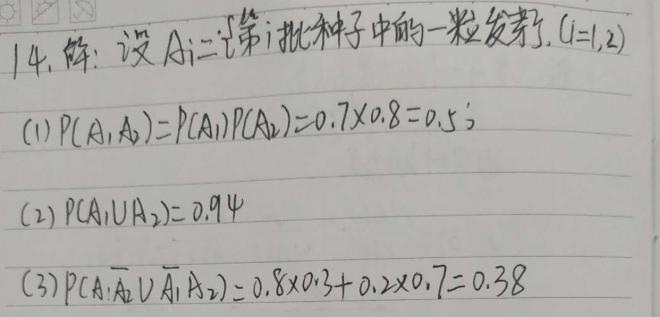 14. 解: 设 Ai={第i批种子中的一粒发芽}. (i=1,2)
(1) P(A₁A₂)=P(A₁)P(A₂)=0.7×0.8=0.5
(2) P(A₁∪A₂)=0.94
(3) P(A₁A̅₂∪A̅₁A₂)=0.8×0.3+0.2×0.7=0.38